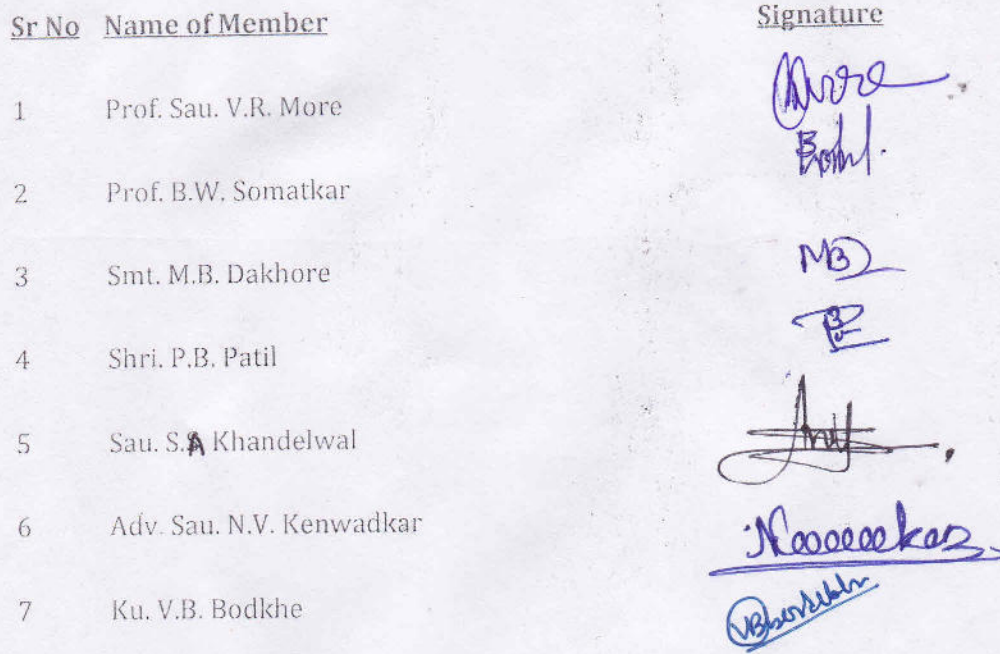 Sr No Name of Member Signature
1 Prof. Sau. V.R. More
2 Prof. B.W. Somatkar
3 Smt. M.B. Dakhore MBD
4 Shri. P.B. Patil
5 Sau. S.A Khandelwal
6 Adv. Sau. N.V. Kenwadkar
7 Ku. V.B. Bodkhe